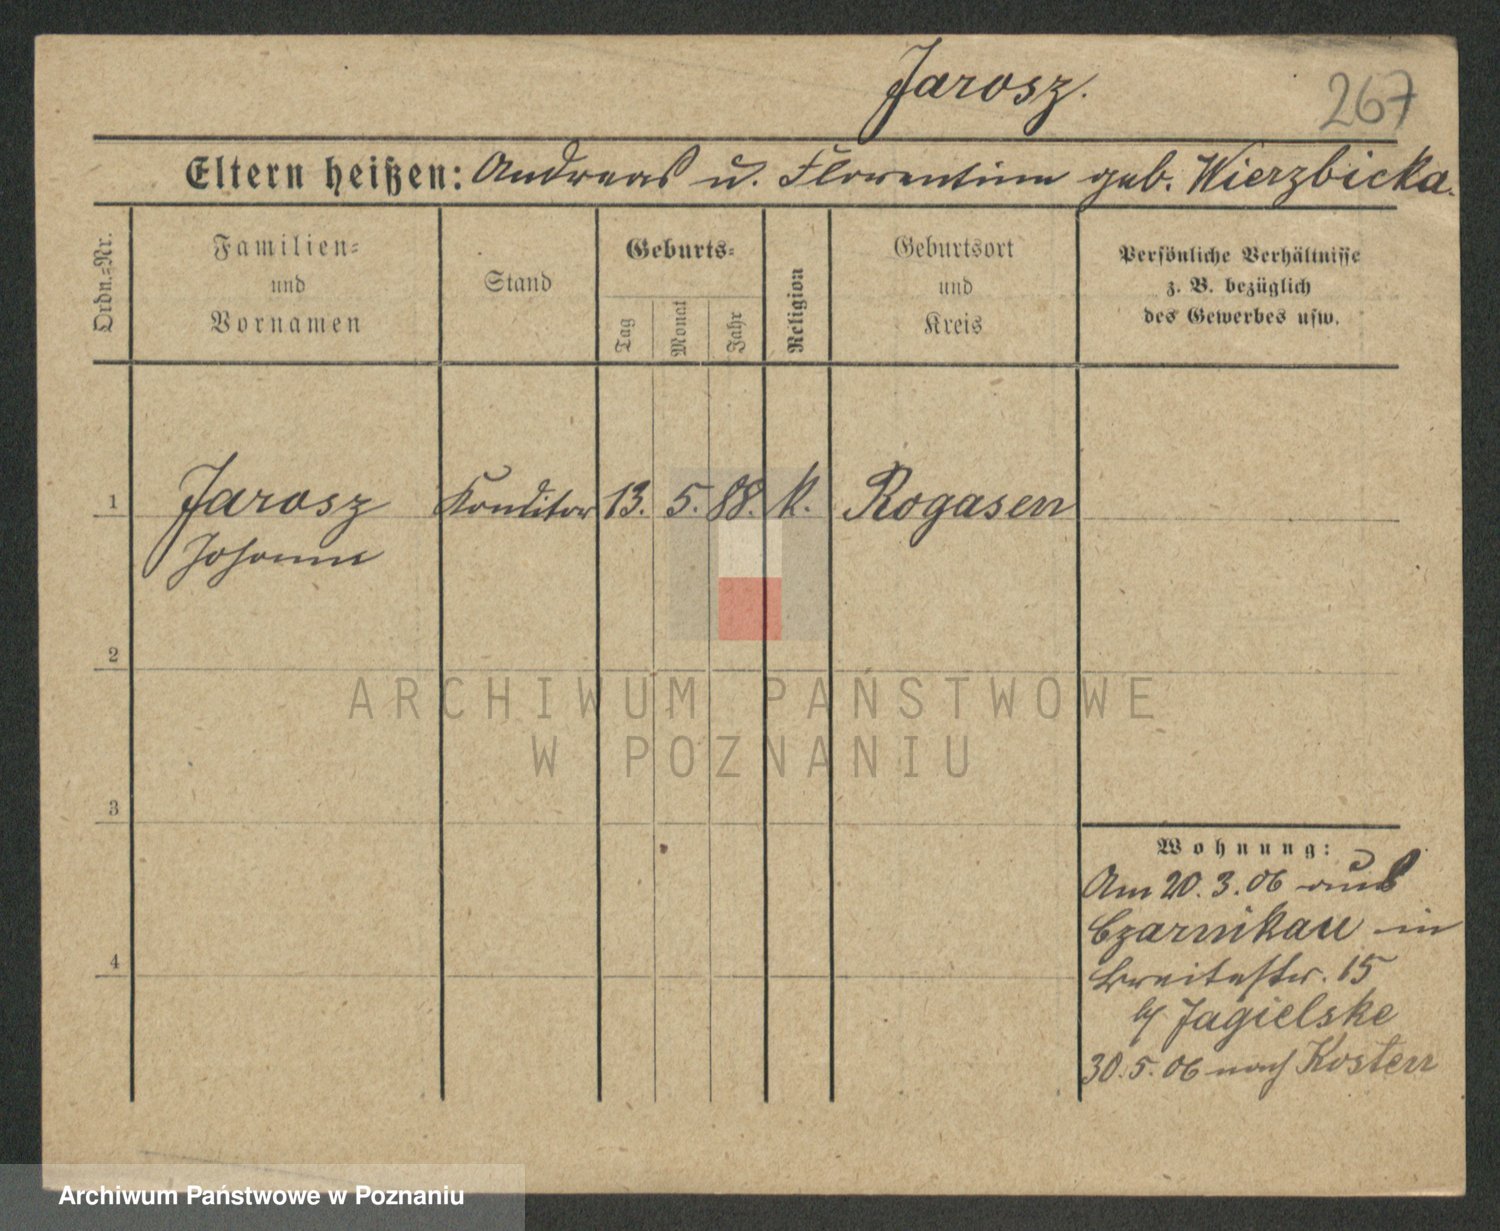 Jarosz.
267
Eltern heißen: Andreas u. Florentine geb. Wierzbicka.
Ordn.=Nr.
Familien=
und
Vornamen
Stand
Geburts=
Tag
Monat
Jahr
Religion
Geburtsort
und
Kreis
Persönliche Verhältnisse
z. B. bezüglich
des Gewerbes usw.
1 Jarosz Konditor 13. 5. 88. k. Rogasen
Johann
2
3
4
Wohnung:
Am 20. 3. 06 aus
Czarnikau in
Breitestr. 15
b/ Jagielske
30. 5. 06 nach Kosten
ARCHIWUM PAŃSTWOWE
W POZNANIU
Archiwum Państwowe w Poznaniu